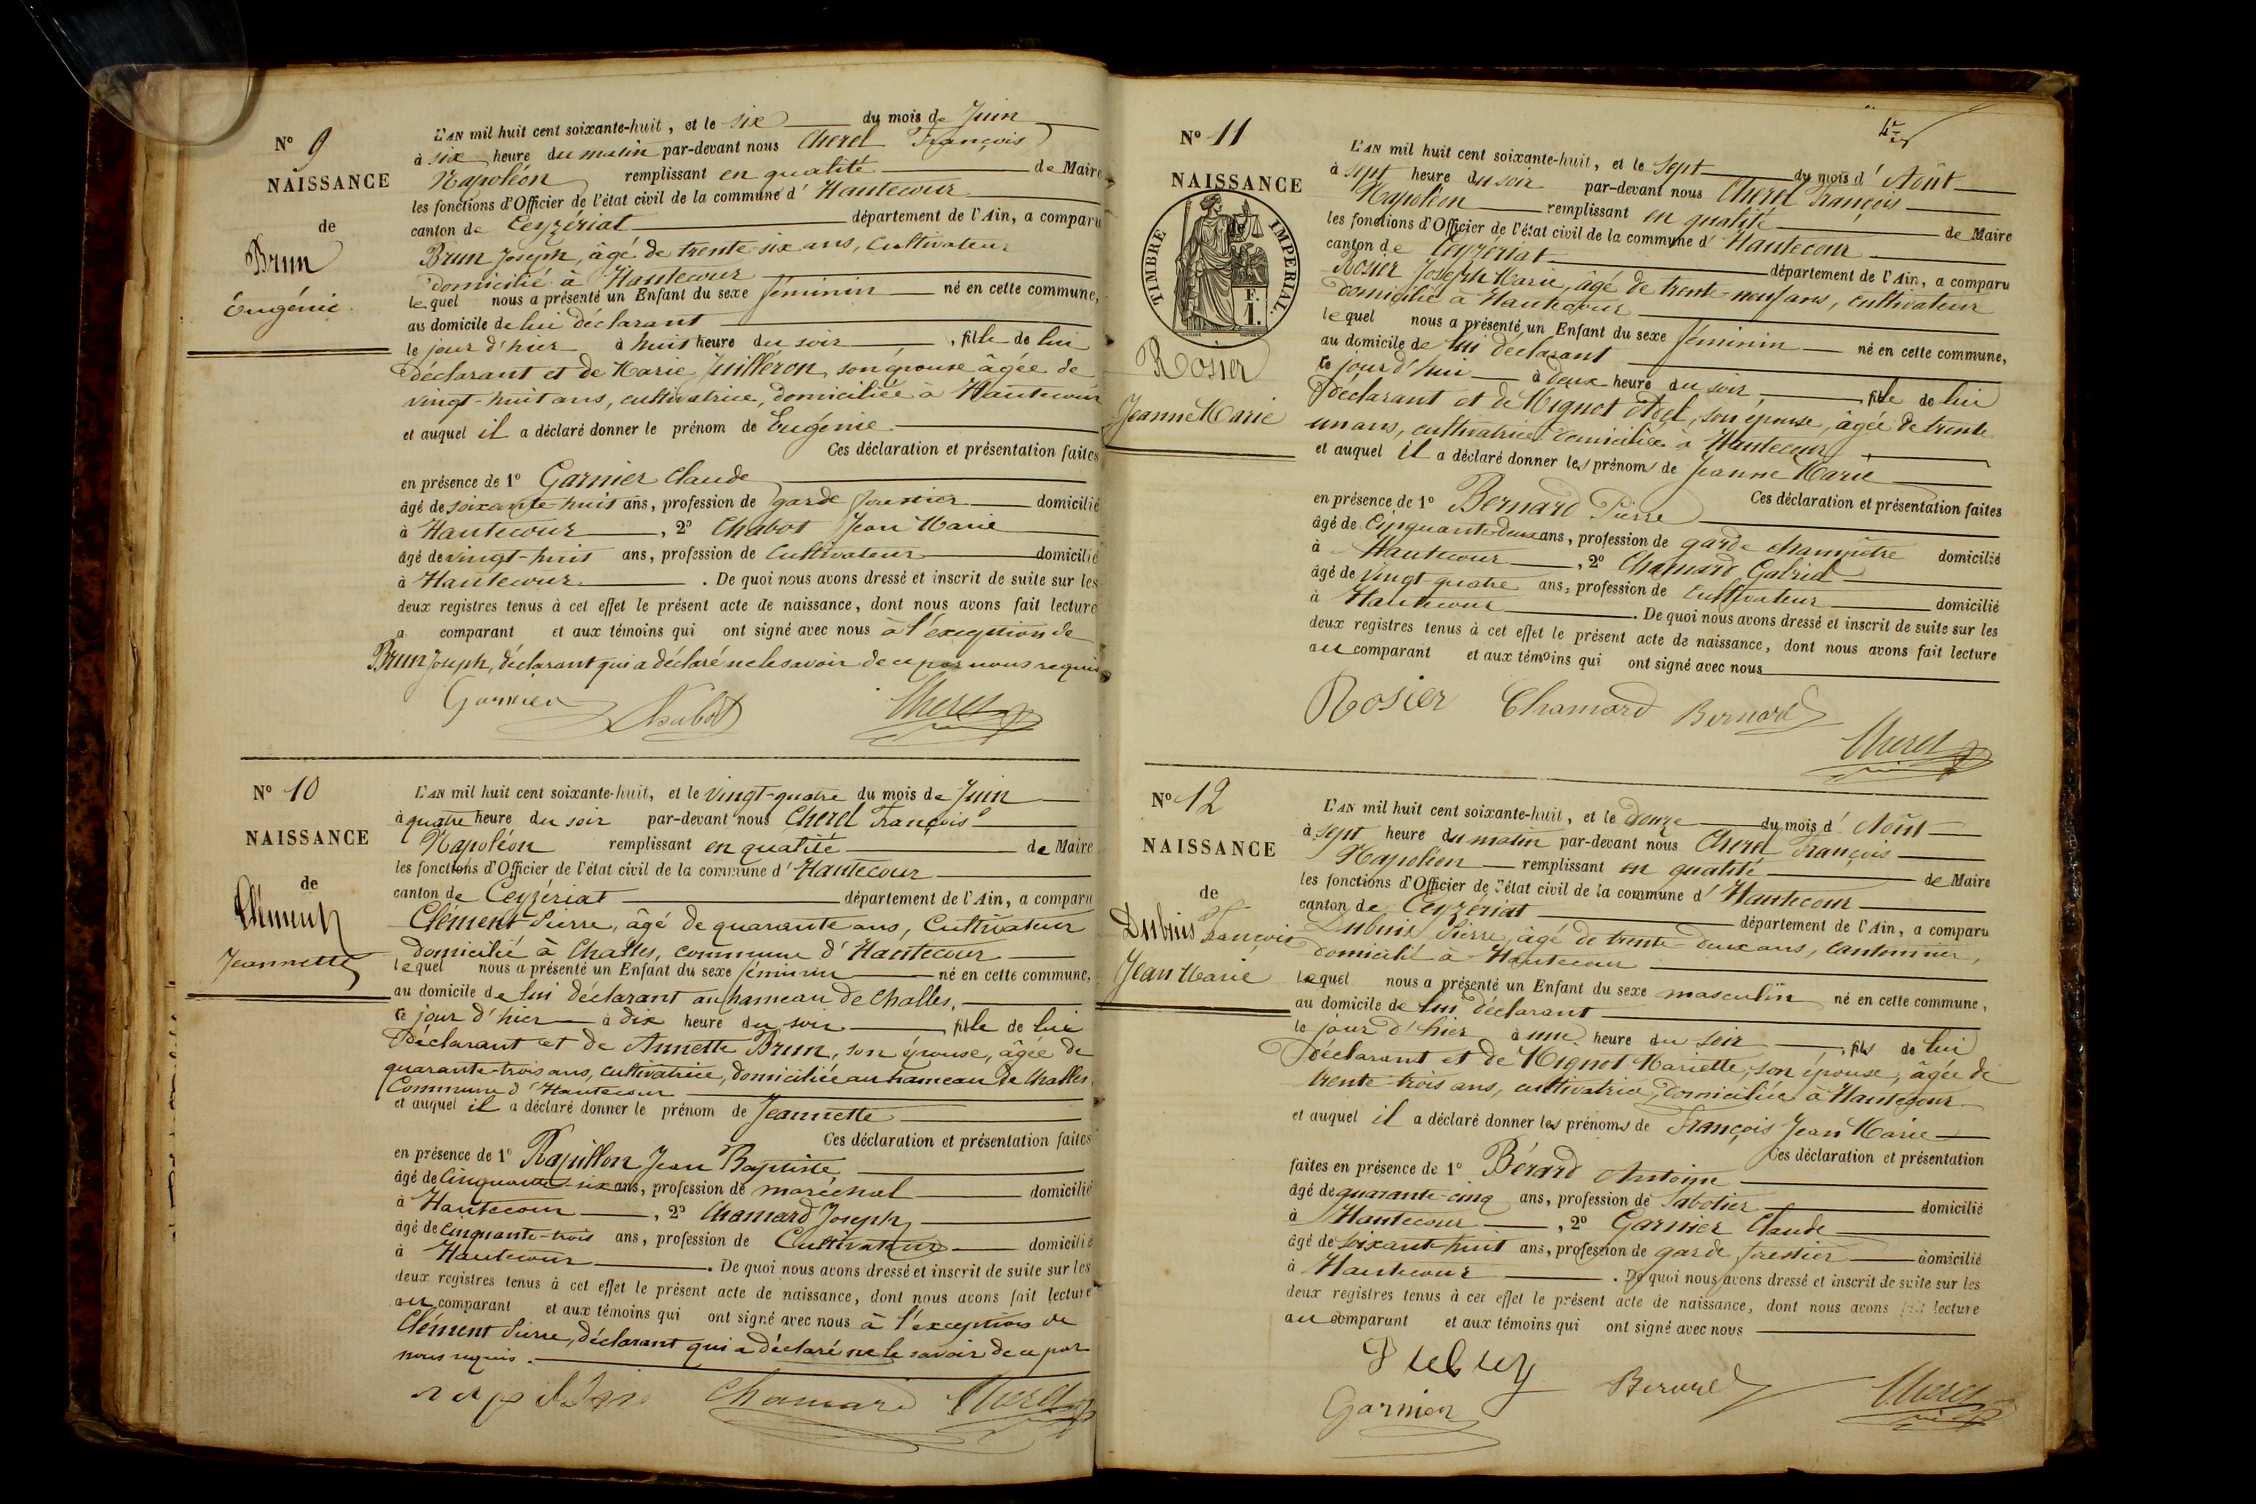 Nº 9
NAISSANCE
de
Brun
Eugénie
L'AN mil huit cent soixante-huit, et le six du mois de Juin
à six heure du matin par-devant nous Cherel François
Napoléon remplissant en qualité de Maire
les fonctions d'Officier de l'état civil de la commune d'Hautecour
canton de Ceyzériat département de l'Ain, a comparu
Brun Joseph, âgé de trente-six ans, Cultivateur
domicilié à Hautecour
lequel nous a présenté un Enfant du sexe féminin né en cette commune,
au domicile de lui déclarant
le jour d'hier à huit heure du soir, fille de lui
déclarant et de Marie Juilléron, son épouse âgée de
vingt-huit ans, cultivatrice, domiciliée à Hautecour
et auquel il a déclaré donner le prénom de Eugénie
Ces déclaration et présentation faites
en présence de 1º Garnier Claude
âgé de soixante-huit ans, profession de garde forestier domicilié
à Hautecour, 2º Chabot Jean Marie
âgé de vingt-huit ans, profession de Cultivateur domicilié
à Hautecour. De quoi nous avons dressé et inscrit de suite sur les
deux registres tenus à cet effet le présent acte de naissance, dont nous avons fait lecture
a comparant et aux témoins qui ont signé avec nous à l'exception de
Brun Joseph, déclarant qui a déclaré ne le savoir de ce par nous requis
Garnier Chabot Cherel
Nº 10
NAISSANCE
de
Clément
Jeannette
L'AN mil huit cent soixante-huit, et le vingt-quatre du mois de Juin
à quatre heure du soir par-devant nous Cherel François
Napoléon remplissant en qualité de Maire
les fonctions d'Officier de l'état civil de la commune d'Hautecour
canton de Ceyzériat département de l'Ain, a comparu
Clément Pierre, âgé de quarante ans, Cultivateur
domicilié à Challes, commune d'Hautecour
lequel nous a présenté un Enfant du sexe féminin né en cette commune,
au domicile de lui déclarant au hameau de Challes,
le jour d'hier à dix heure du soir, fille de lui
Déclarant et de Annette Brun, son épouse, âgée de
quarante-trois ans, cultivatrice, domiciliée au hameau de Challes,
Commune d'Hautecour
et auquel il a déclaré donner le prénom de Jeannette
Ces déclaration et présentation faites
en présence de 1º Rapillon Jean Baptiste
âgé de Cinquante-six ans, profession de maréchal domicilié
à Hautecour, 2º Chamard Joseph
âgé de Cinquante-trois ans, profession de Cultivateur domicilié
à Hautecour. De quoi nous avons dressé et inscrit de suite sur les
deux registres tenus à cet effet le présent acte de naissance, dont nous avons fait lecture
au comparant et aux témoins qui ont signé avec nous à l'exception de
Clément Pierre, déclarant qui a déclaré ne le savoir de ce par
nous requis.
Chamard Cherel
Nº 11
NAISSANCE
TIMBRE IMPÉRIAL
F.
1.
Rosier
Jeanne Marie
L'AN mil huit cent soixante-huit, et le Sept du mois d'Août
à sept heure du soir par-devant nous Cherel François
Napoléon remplissant en qualité de Maire
les fonctions d'Officier de l'état civil de la commune d'Hautecour
canton de Ceyzériat département de l'Ain, a comparu
Rosier Joseph Marie, âgé de trente-neuf ans, cultivateur
domicilié à Hautecour
lequel nous a présenté un Enfant du sexe féminin né en cette commune,
au domicile de lui déclarant
ce jourd'hui à deux heure du soir, fille de lui
Déclarant et de Mignot Adel, son épouse, âgée de trente
un ans, cultivatrice domiciliée à Hautecour
et auquel il a déclaré donner les prénoms de Jeanne Marie
Ces déclaration et présentation faites
en présence de 1º Bernard Pierre
âgé de Cinquante-deux ans, profession de garde champêtre domicilié
à Hautecour, 2º Chamard Gabriel
âgé de vingt-quatre ans, profession de Cultivateur domicilié
à Hautecour. De quoi nous avons dressé et inscrit de suite sur les
deux registres tenus à cet effet le présent acte de naissance, dont nous avons fait lecture
au comparant et aux témoins qui ont signé avec nous
Rosier Chamard Bernard
Cherel
Nº 12
NAISSANCE
de
Dubuis François
Jean Marie
L'AN mil huit cent soixante-huit, et le Douze du mois d'Août
à sept heure du matin par-devant nous Cherel François
Napoléon remplissant en qualité de Maire
les fonctions d'Officier de l'état civil de la commune d'Hautecour
canton de Ceyzériat département de l'Ain, a comparu
Dubuis Pierre, âgé de trente-deux ans, cantonnier,
domicilié à Hautecour
lequel nous a présenté un Enfant du sexe masculin né en cette commune,
au domicile de lui déclarant
le jour d'hier à une heure du soir, fils de lui
Déclarant et de Mignot Mariette, son épouse, âgée de
trente-trois ans, cultivatrice, Domiciliée à Hautecour
et auquel il a déclaré donner les prénoms de François Jean Marie
Ces déclaration et présentation
faites en présence de 1º Bérard Antoine
âgé de quarante-cinq ans, profession de Sabotier domicilié
à Hautecour, 2º Garnier Claude
âgé de soixante-huit ans, profession de garde forestier domicilié
à Hautecour. De quoi nous avons dressé et inscrit de suite sur les
deux registres tenus à cet effet le présent acte de naissance, dont nous avons fait lecture
au comparant et aux témoins qui ont signé avec nous
Berard Cherel
Garnier